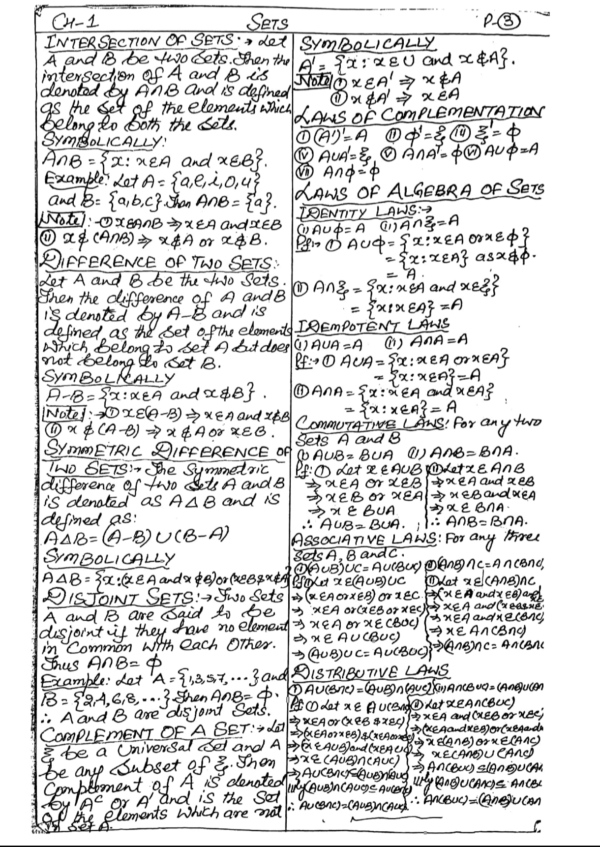 CH-1 SETS P-③
INTERSECTION OF SETS:→ Let
A and B be two sets. Then the
intersection of A and B is
denoted by A∩B and is defined
as the set of the elements which
belong to both the sets.
SYMBOLICALLY:
A∩B = {x: x∈A and x∈B}.
Example: Let A = {a,e,i,o,u}
and B = {a,b,c}. Then A∩B = {a}.
Note:→ ① x∈A∩B ⇒ x∈A and x∈B
② x∉(A∩B) ⇒ x∉A or x∉B.
DIFFERENCE OF TWO SETS:
Let A and B be the two sets.
Then the difference of A and B
is denoted by A-B and is
defined as the set of the elements
which belong to set A but does
not belong to set B.
SYMBOLICALLY
A-B = {x: x∈A and x∉B}.
Note:→ ① x∈(A-B) ⇒ x∈A and x∉B
② x∉(A-B) ⇒ x∉A or x∈B.
SYMMETRIC DIFFERENCE OF
TWO SETS:→ The symmetric
difference of two sets A and B
is denoted as A△B and is
defined as:
A△B = (A-B)∪(B-A)
SYMBOLICALLY
A△B = {x: (x∈A and x∉B) or (x∈B & x∉A)}
DISJOINT SETS:→ Two Sets
A and B are said to be
disjoint if they have no element
in Common with each Other.
Thus A∩B = ϕ
Example: Let A = {1,3,5,7,...} and
B = {2,4,6,8,...}. Then A∩B = ϕ.
∴ A and B are disjoint Sets.
COMPLEMENT OF A SET:→ Let
ξ be a Universal Set and A
be any Subset of ξ. Then
Complement of A is denoted
by Aᶜ or A' and is the Set
of the elements which are not
in Set A.
SYMBOLICALLY
A' = {x: x∈U and x∉A}.
Note ① x∈A' ⇒ x∉A
② x∉A' ⇒ x∈A
LAWS OF COMPLEMENTATION
(i) (A')' = A (ii) ϕ' = ξ (iii) ξ' = ϕ
(iv) A∪A' = ξ (v) A∩A' = ϕ (vi) A∪ϕ = A
(vii) A∩ϕ = ϕ
LAWS OF ALGEBRA OF SETS
IDENTITY LAWS:→
(i) A∪ϕ = A (ii) A∩ξ = A
Pf:→ ① A∪ϕ = {x: x∈A or x∈ϕ}
= {x: x∈A} as x∉ϕ
= A.
② A∩ξ = {x: x∈A and x∈ξ}
= {x: x∈A} = A
IDEMPOTENT LAWS
(i) A∪A = A (ii) A∩A = A
Pf:→ ① A∪A = {x: x∈A or x∈A}
= {x: x∈A} = A
② A∩A = {x: x∈A and x∈A}
= {x: x∈A} = A
COMMUTATIVE LAWS: For any two
Sets A and B
(i) A∪B = B∪A (ii) A∩B = B∩A.
Pf: ① Let x∈A∪B ② Let x∈A∩B
⇒ x∈A or x∈B ⇒ x∈A and x∈B
⇒ x∈B or x∈A ⇒ x∈B and x∈A
⇒ x∈B∪A ⇒ x∈B∩A.
∴ A∪B = B∪A. ∴ A∩B = B∩A.
ASSOCIATIVE LAWS: For any three
Sets A, B and C.
① (A∪B)∪C = A∪(B∪C) ② (A∩B)∩C = A∩(B∩C)
Pf: ① Let x∈(A∪B)∪C ② Let x∈(A∩B)∩C
⇒ (x∈A or x∈B) or x∈C ⇒ (x∈A and x∈B) and
⇒ x∈A or (x∈B or x∈C) ⇒ x∈A and (x∈B & x∈
⇒ x∈A or x∈(B∪C) ⇒ x∈A and x∈(B∩C)
⇒ x∈A∪(B∪C) ⇒ x∈A∩(B∩C)
⇒ (A∪B)∪C = A∪(B∪C) ⇒ (A∩B)∩C = A∩(B∩C
DISTRIBUTIVE LAWS
① A∪(B∩C) = (A∪B)∩(A∪C) (ii) A∩(B∪C) = (A∩B)∪(A∩
Pf: ① Let x∈A∪(B∩C) ② Let x∈A∩(B∪C)
⇒ x∈A or (x∈B & x∈C) ⇒ x∈A and (x∈B or x∈C)
⇒ (x∈A or x∈B) & (x∈A or x∈C) ⇒ (x∈A and x∈B) or (x∈A and
⇒ (x∈A∪B) and (x∈A∪C) ⇒ x∈(A∩B) or x∈(A∩C)
⇒ x∈(A∪B)∩(A∪C) x∈(A∩B)∪(A∩C)
⇒ A∪(B∩C) ⊆ (A∪B)∩(A∪C) ⇒ A∩(B∪C) ⊆ (A∩B)∪(A∩
lly (A∪B)∩(A∪C) ⊆ A∪(B∩C) lly (A∩B)∪(A∩C) ⊆ A∩(B∪
∴ A∪(B∩C) = (A∪B)∩(A∪C) ∴ A∩(B∪C) = (A∩B)∪(A∩